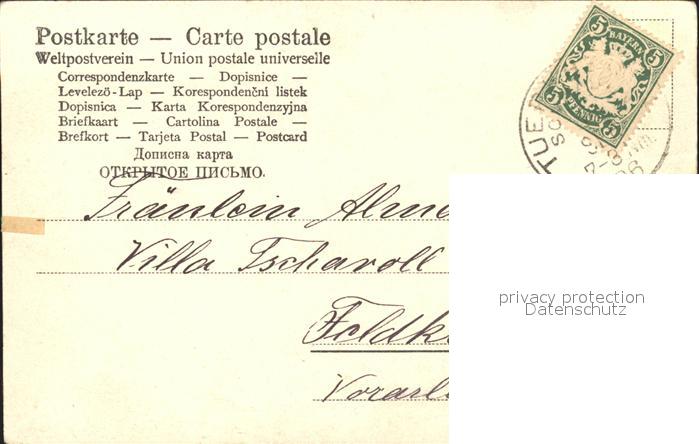 Postkarte — Carte postale
Weltpostverein — Union postale universelle
Correspondenzkarte — Dopisnice —
Levelező-Lap — Korespondenční listek
Dopisnica — Karta Korespondenzyjna
Briefkaart — Cartolina Postale —
Brefkort — Tarjeta Postal — Postcard
Дописна карта
ОТКРЫТОЕ ПИСЬМО.
5 BAYERN 5
5 PFENNIG 5
Fräulein
Villa Tscharoll
privacy protection
Datenschutz